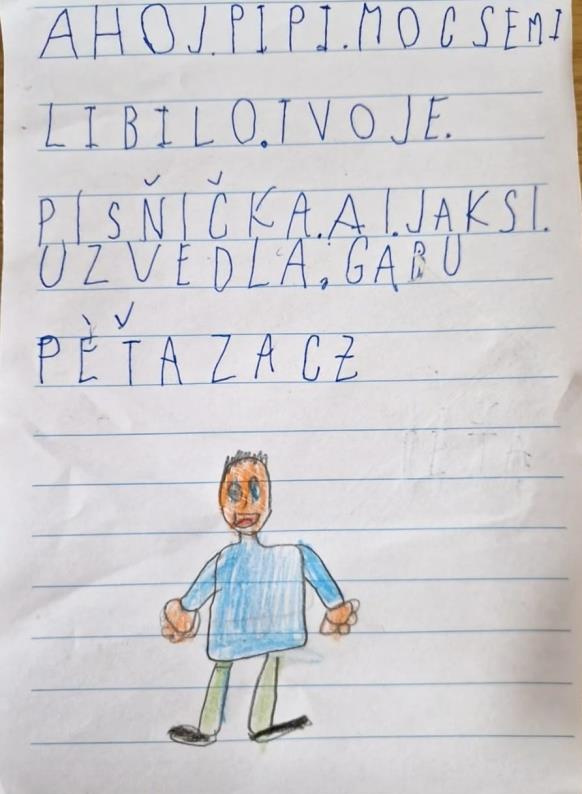 AHOJ.PIPI.MOC SEMI
LIBILO.TVOJE.
PISŇIČKA.A I.JAKSI.
UZVEDLA.GABU
PĚŤA ZACZ
PEŤA